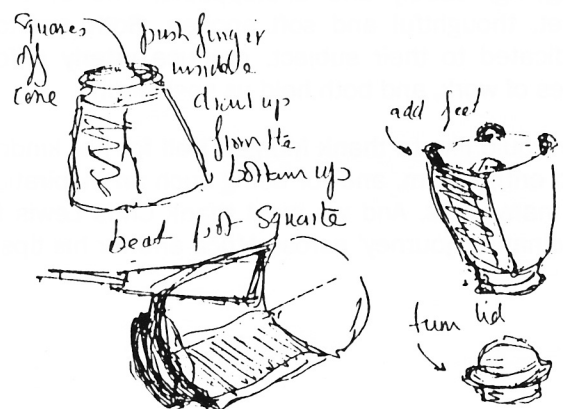 Squares
off
cone
push finger
inside
up
from the
bottom up
beat pot Square
add feet
turn lid